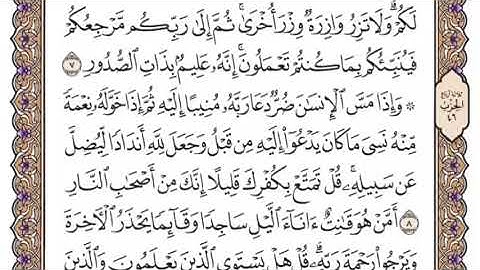 لَكُمْ ۗ وَلَا تَزِرُ وَازِرَةٌ وِزْرَ أُخْرَىٰ ۗ ثُمَّ إِلَىٰ رَبِّكُم مَّرْجِعُكُمْ
فَيُنَبِّئُكُم بِمَا كُنتُمْ تَعْمَلُونَ ۚ إِنَّهُ عَلِيمٌۢ بِذَاتِ ٱلصُّدُورِ ٧
۞ وَإِذَا مَسَّ ٱلْإِنسَٰنَ ضُرٌّ دَعَا رَبَّهُۥ مُنِيبًا إِلَيْهِ ثُمَّ إِذَا خَوَّلَهُۥ نِعْمَةً
مِّنْهُ نَسِىَ مَا كَانَ يَدْعُوٓا۟ إِلَيْهِ مِن قَبْلُ وَجَعَلَ لِلَّهِ أَندَادًا لِّيُضِلَّ
عَن سَبِيلِهِۦ ۚ قُلْ تَمَتَّعْ بِكُفْرِكَ قَلِيلًا ۖ إِنَّكَ مِنْ أَصْحَٰبِ ٱلنَّارِ
٨ أَمَّنْ هُوَ قَٰنِتٌ ءَانَآءَ ٱلَّيْلِ سَاجِدًا وَقَآئِمًا يَحْذَرُ ٱلْءَاخِرَةَ
وَيَرْجُوا۟ رَحْمَةَ رَبِّهِۦ ۗ قُلْ هَلْ يَسْتَوِى ٱلَّذِينَ يَعْلَمُونَ وَٱلَّذِينَ
الحزب
٤٦